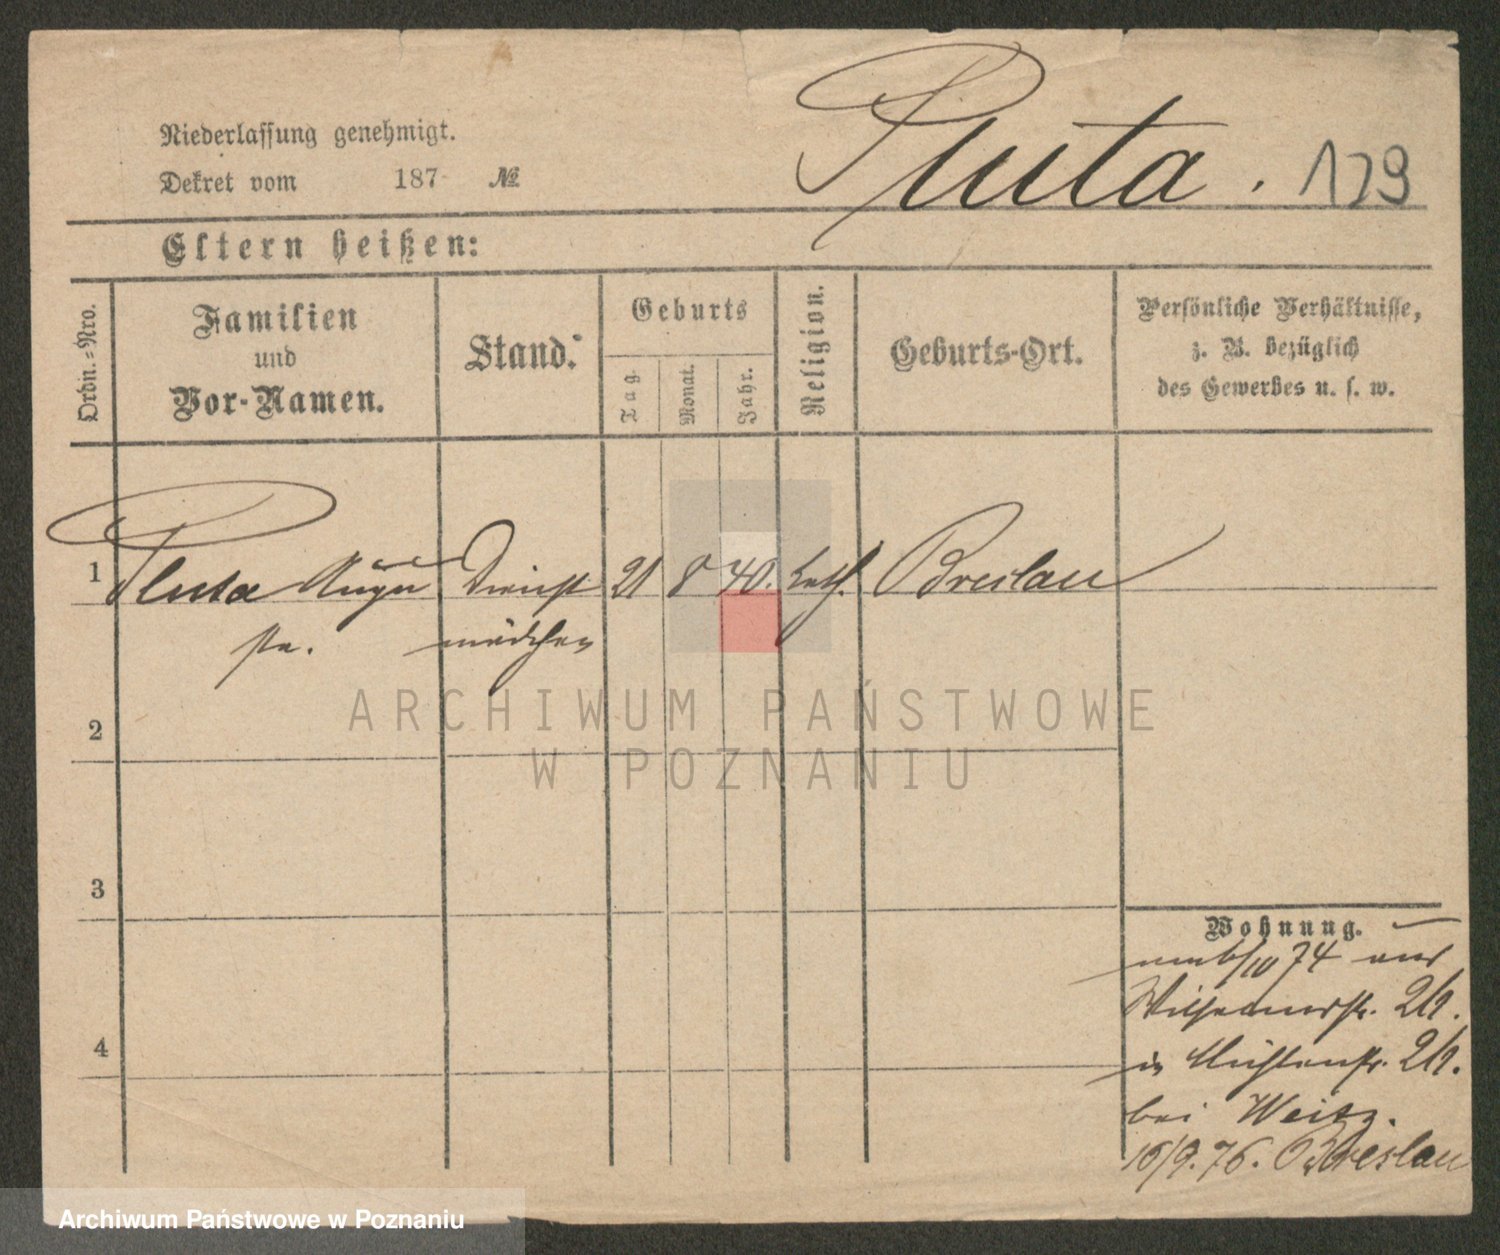 Pluta. 129
Niederlassung genehmigt.
Dekret vom 187 №
Eltern heißen:
Ordn.=Nro.
Familien
und
Vor-Namen.
Stand.
Geburts
Tag.
Monat.
Jahr.
Religion.
Geburts-Ort.
Persönliche Verhältnisse,
z. B. bezüglich
des Gewerbes u. s. w.
1 Pluta Augu Dienst 21 8 40. kath. Breslau
ste. mädchen
2
3
4
Wohnung.
10 74 aus
Wilhelmstr.
in Mühlenstr.
bei Weitz.
9. 76. Breslau
ARCHIWUM PAŃSTWOWE
W POZNANIU
Archiwum Państwowe w Poznaniu